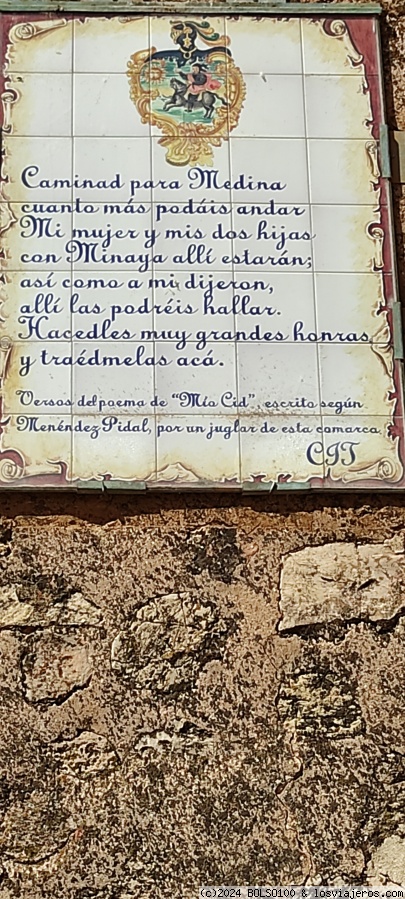 Caminad para Medina
cuanto más podáis andar
Mi mujer y mis dos hijas
con Minaya allí estarán;
así como a mi dijeron,
allí las podréis hallar.
Hacedles muy grandes honras
y traédmelas acá.
Versos del poema de "Mío Cid", escrito según
Menéndez Pidal, por un juglar de esta comarca.
CIT
(c)2024 BOLSO100 & losviajeros.com